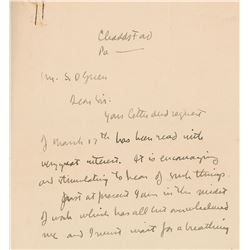 Chadds Ford
Pa
Mr. S. D. Green
Dear Sir.
Your letter and request
of March 17th has been read with
very great interest. It is encouraging
and stimulating to hear of such things.
Just at present I am in the midst
of work which has all but overwhelmed
me and I must wait for a breathing